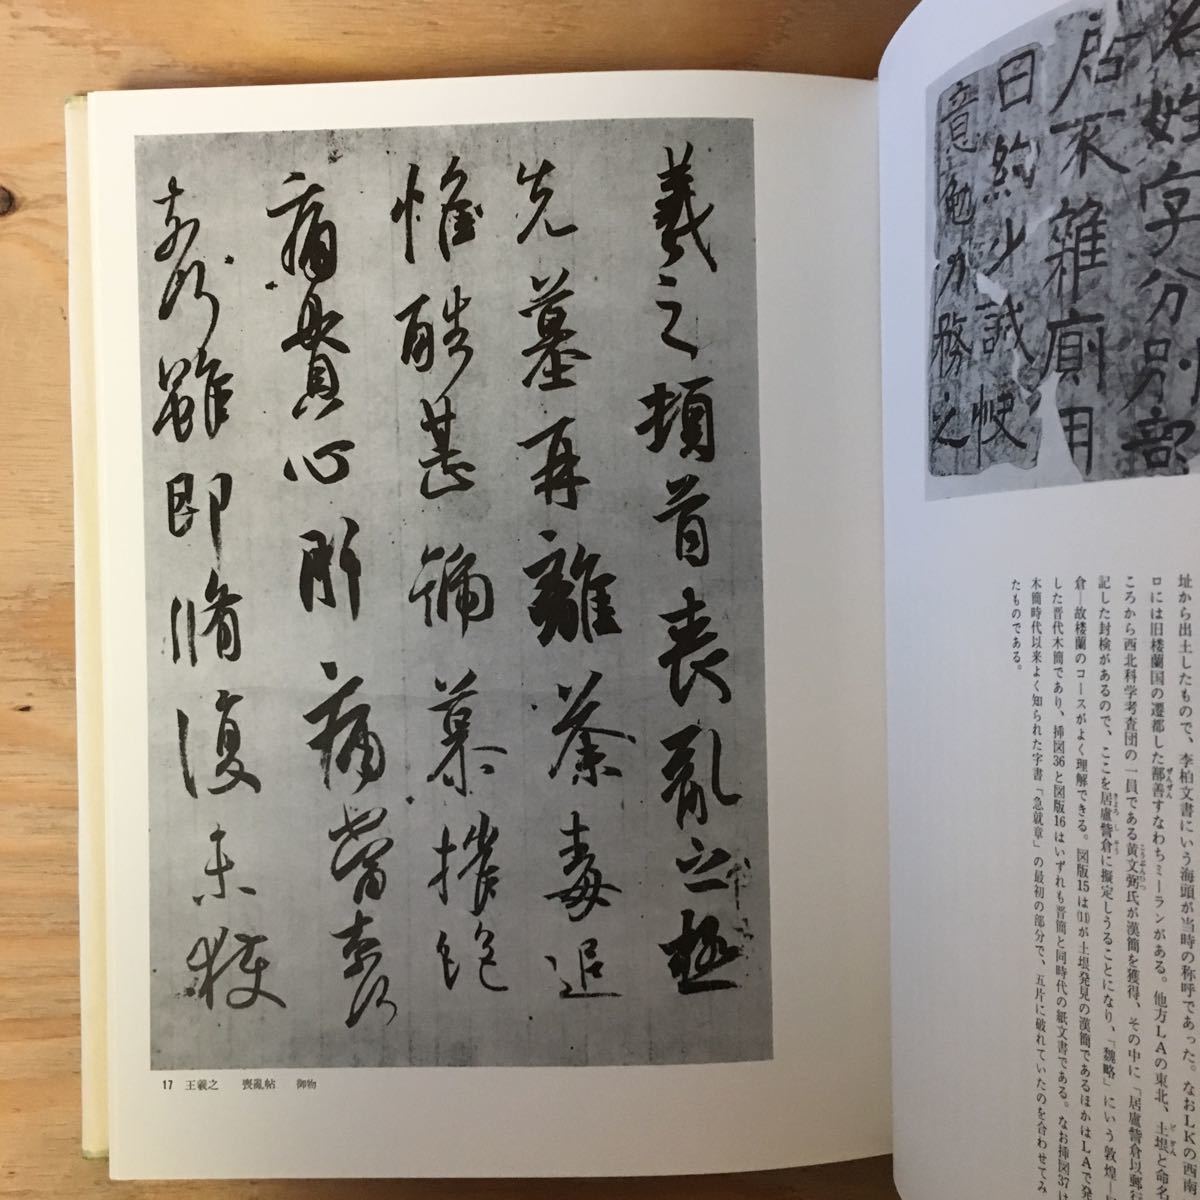 名姓字分別部
居不雜厠用
日約少誠快
意勉力務之
址から出土したもので、李柏文書にいう海頭が当時の称呼であった。なおＬＫの西南
ロには旧楼蘭国の遷都した鄯善すなわちミーランがある。他方ＬＡの東北、土垠と命名
ころから西北科学考査団の一員である黄文弼氏が漢簡を獲得、その中に「居盧訾倉以郵
記した封検があるので、ここを居盧訾倉に擬定しうることになり、「魏略」にいう敦煌―
倉―故楼蘭のコースがよく理解できる。図版15は(11)が土垠発見の漢簡であるほかはＬＡで発
した晋代木簡であり、挿図36と図版16はいずれも晋簡と同時代の紙文書である。なお挿図37は
木簡時代以来よく知られた字書「急就章」の最初の部分で、五片に破れていたのを合わせてみ
たものである。
羲之頓首喪亂之極
先墓再離荼毒追
惟酷甚號慕摧絶
痛貫心肝痛當奈何
奈何雖即脩復未獲
17 王羲之 喪亂帖 御物